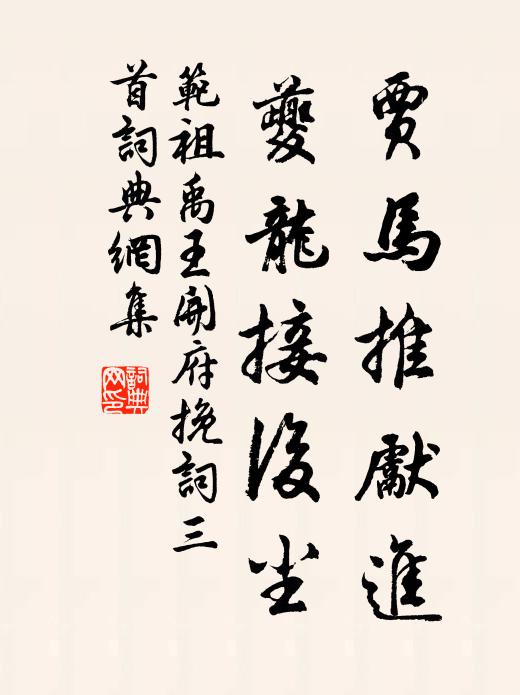 賈馬推獻進
夔龍接後尘
範祖禹王開府挽詞三
首詞典網集
詞典网印